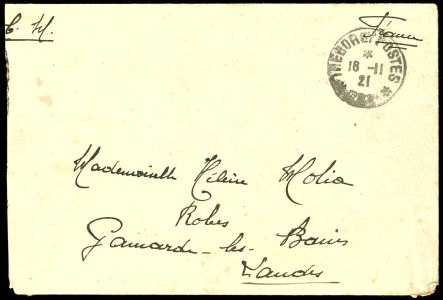 F. M.
France
TRESOR ET POSTES
*
18 -11
21
Mademoiselle Hélène Molia
Robes
Gamarde-les-Bains
Landes